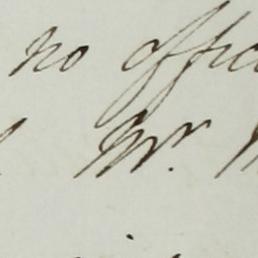 no offic
Mr.